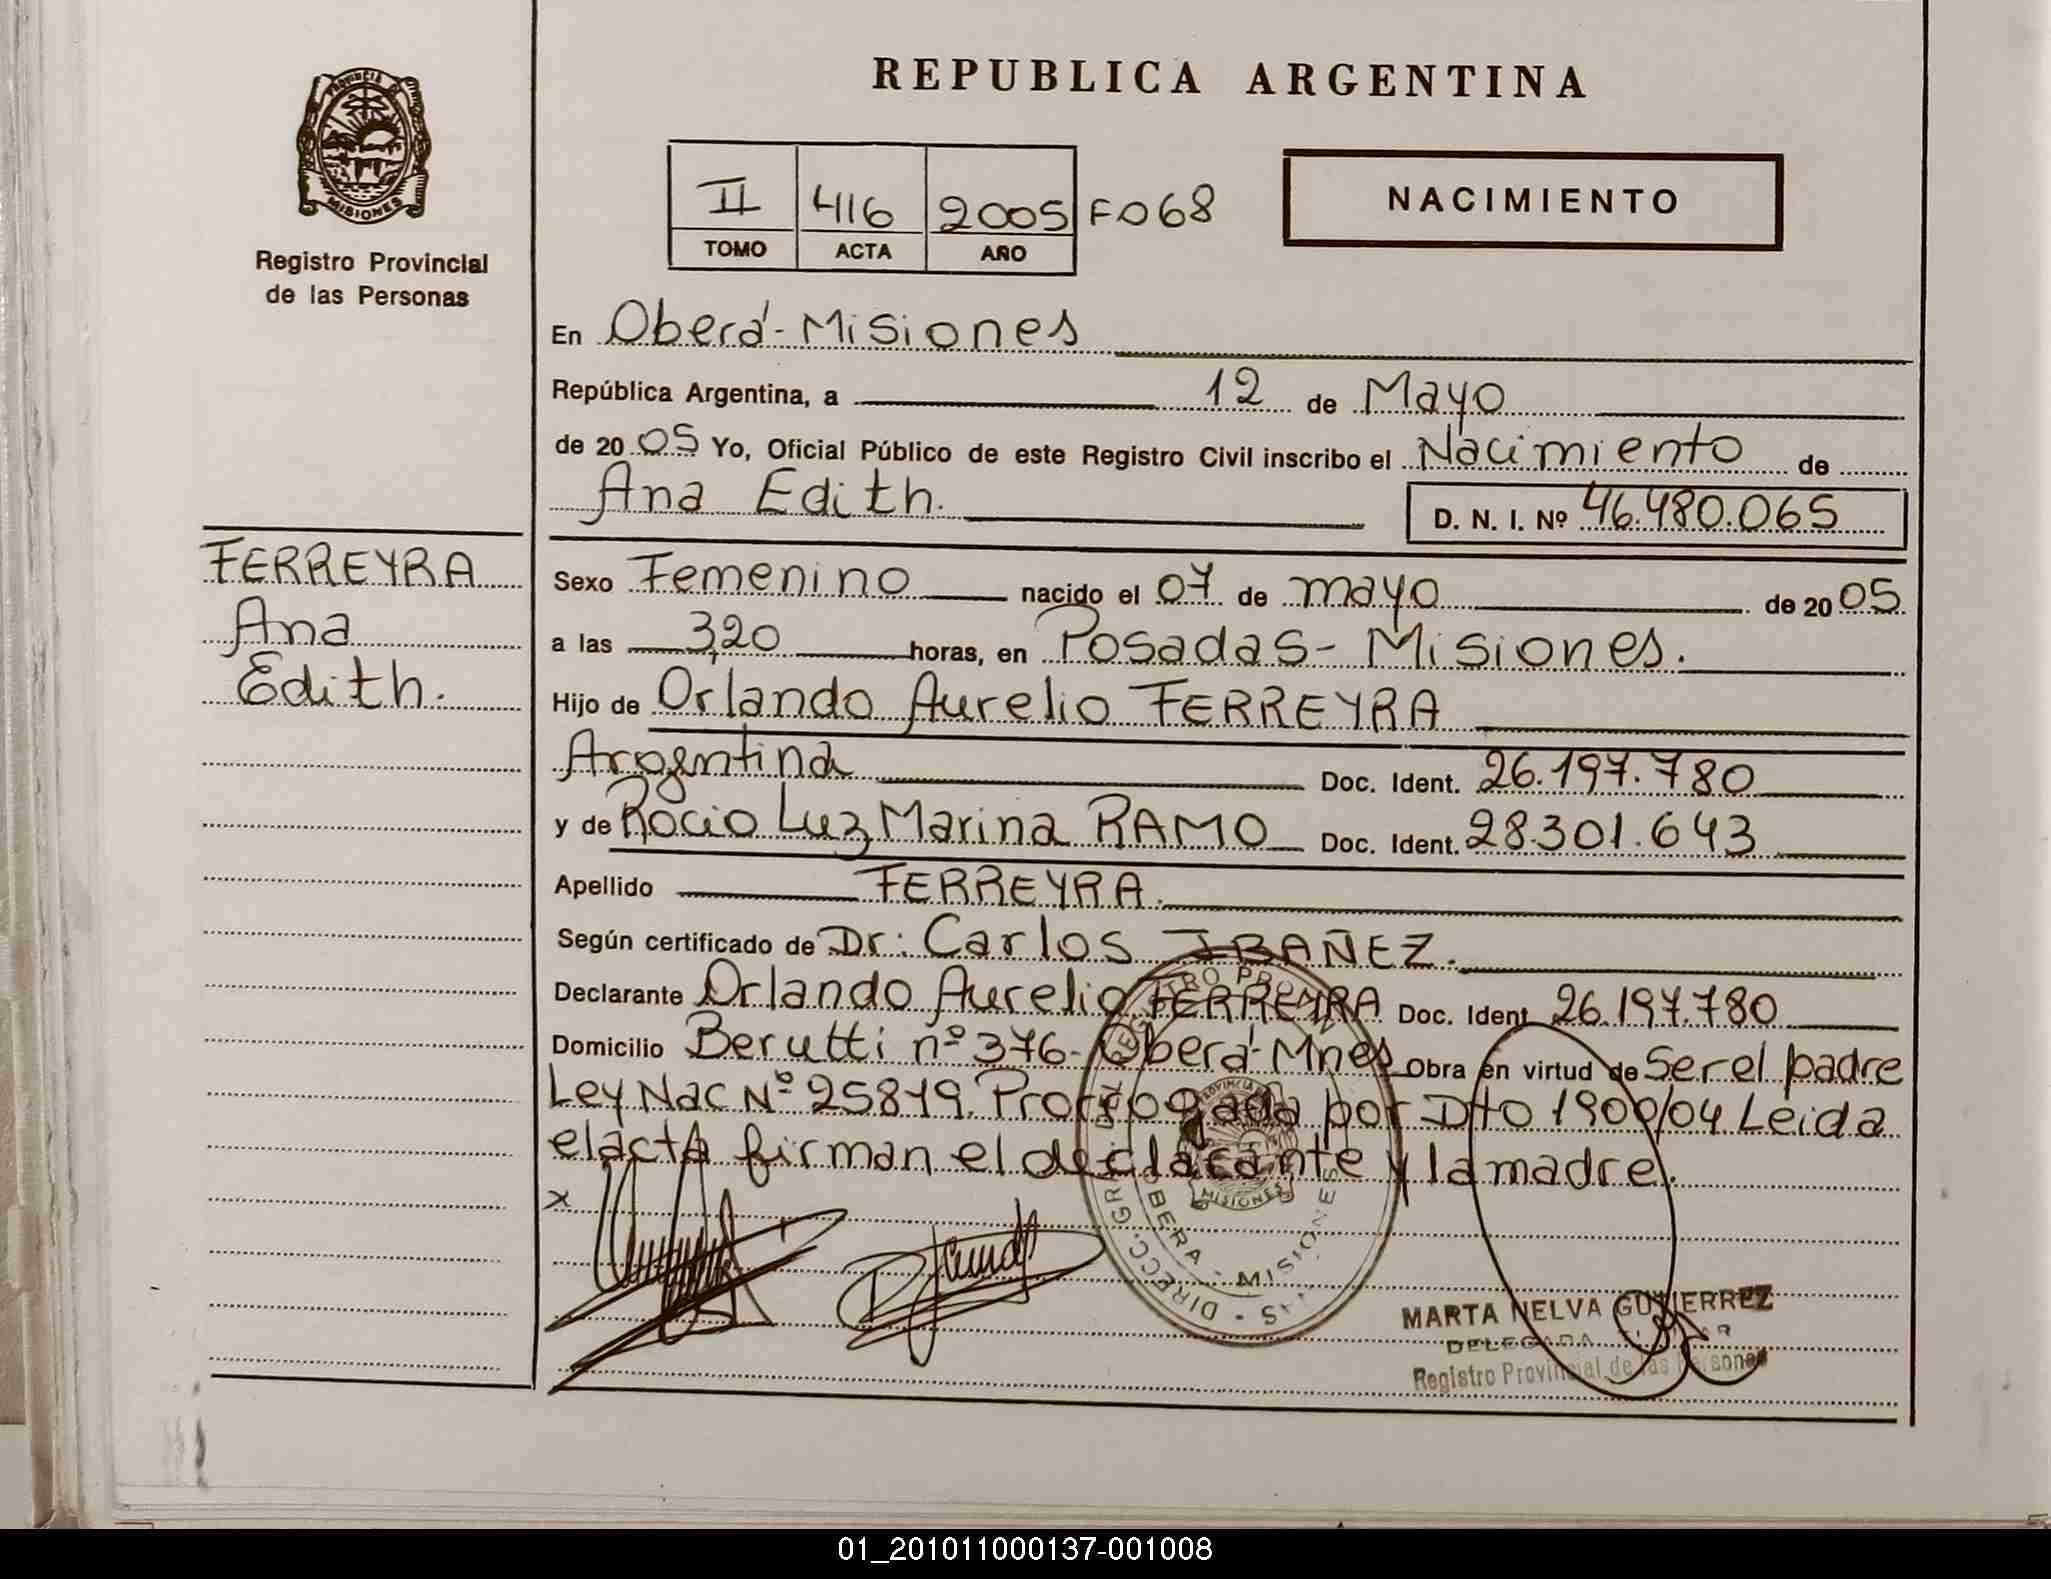 REPUBLICA ARGENTINA
PROVINCIA DE
MISIONES
Registro Provincial
de las Personas
II 416 2005 F068
TOMO ACTA AÑO
NACIMIENTO
En Oberá-Misiones
República Argentina, a 12 de Mayo
de 2005 Yo, Oficial Público de este Registro Civil inscribo el Nacimiento de
Ana Edith.
D. N. I. Nº 46.480.065
FERREYRA
Ana
Edith.
Sexo Femenino nacido el 07 de mayo de 2005
a las 3,20 horas, en Posadas-Misiones.
Hijo de Orlando Aurelio FERREYRA
Argentina Doc. Ident. 26.197.780
y de Rocio Luz Marina RAMO Doc. Ident. 28.301.643
Apellido FERREYRA.
Según certificado de Dr: Carlos IBAÑEZ.
Declarante Orlando Aurelio FERREYRA Doc. Ident. 26.197.780
Domicilio Berutti nº 376-Oberá-Mnes Obra en virtud de Ser el padre
Ley Nac Nº 25819. Prorrogada por Dto 1900/04 Leida
el acta firman el declarante y la madre.
x
OBERA - MISIONES
MISIONES
MARTA NELVA GUTIERREZ
DELEGADA
Registro Provincial de las Personas
01_201011000137-001008